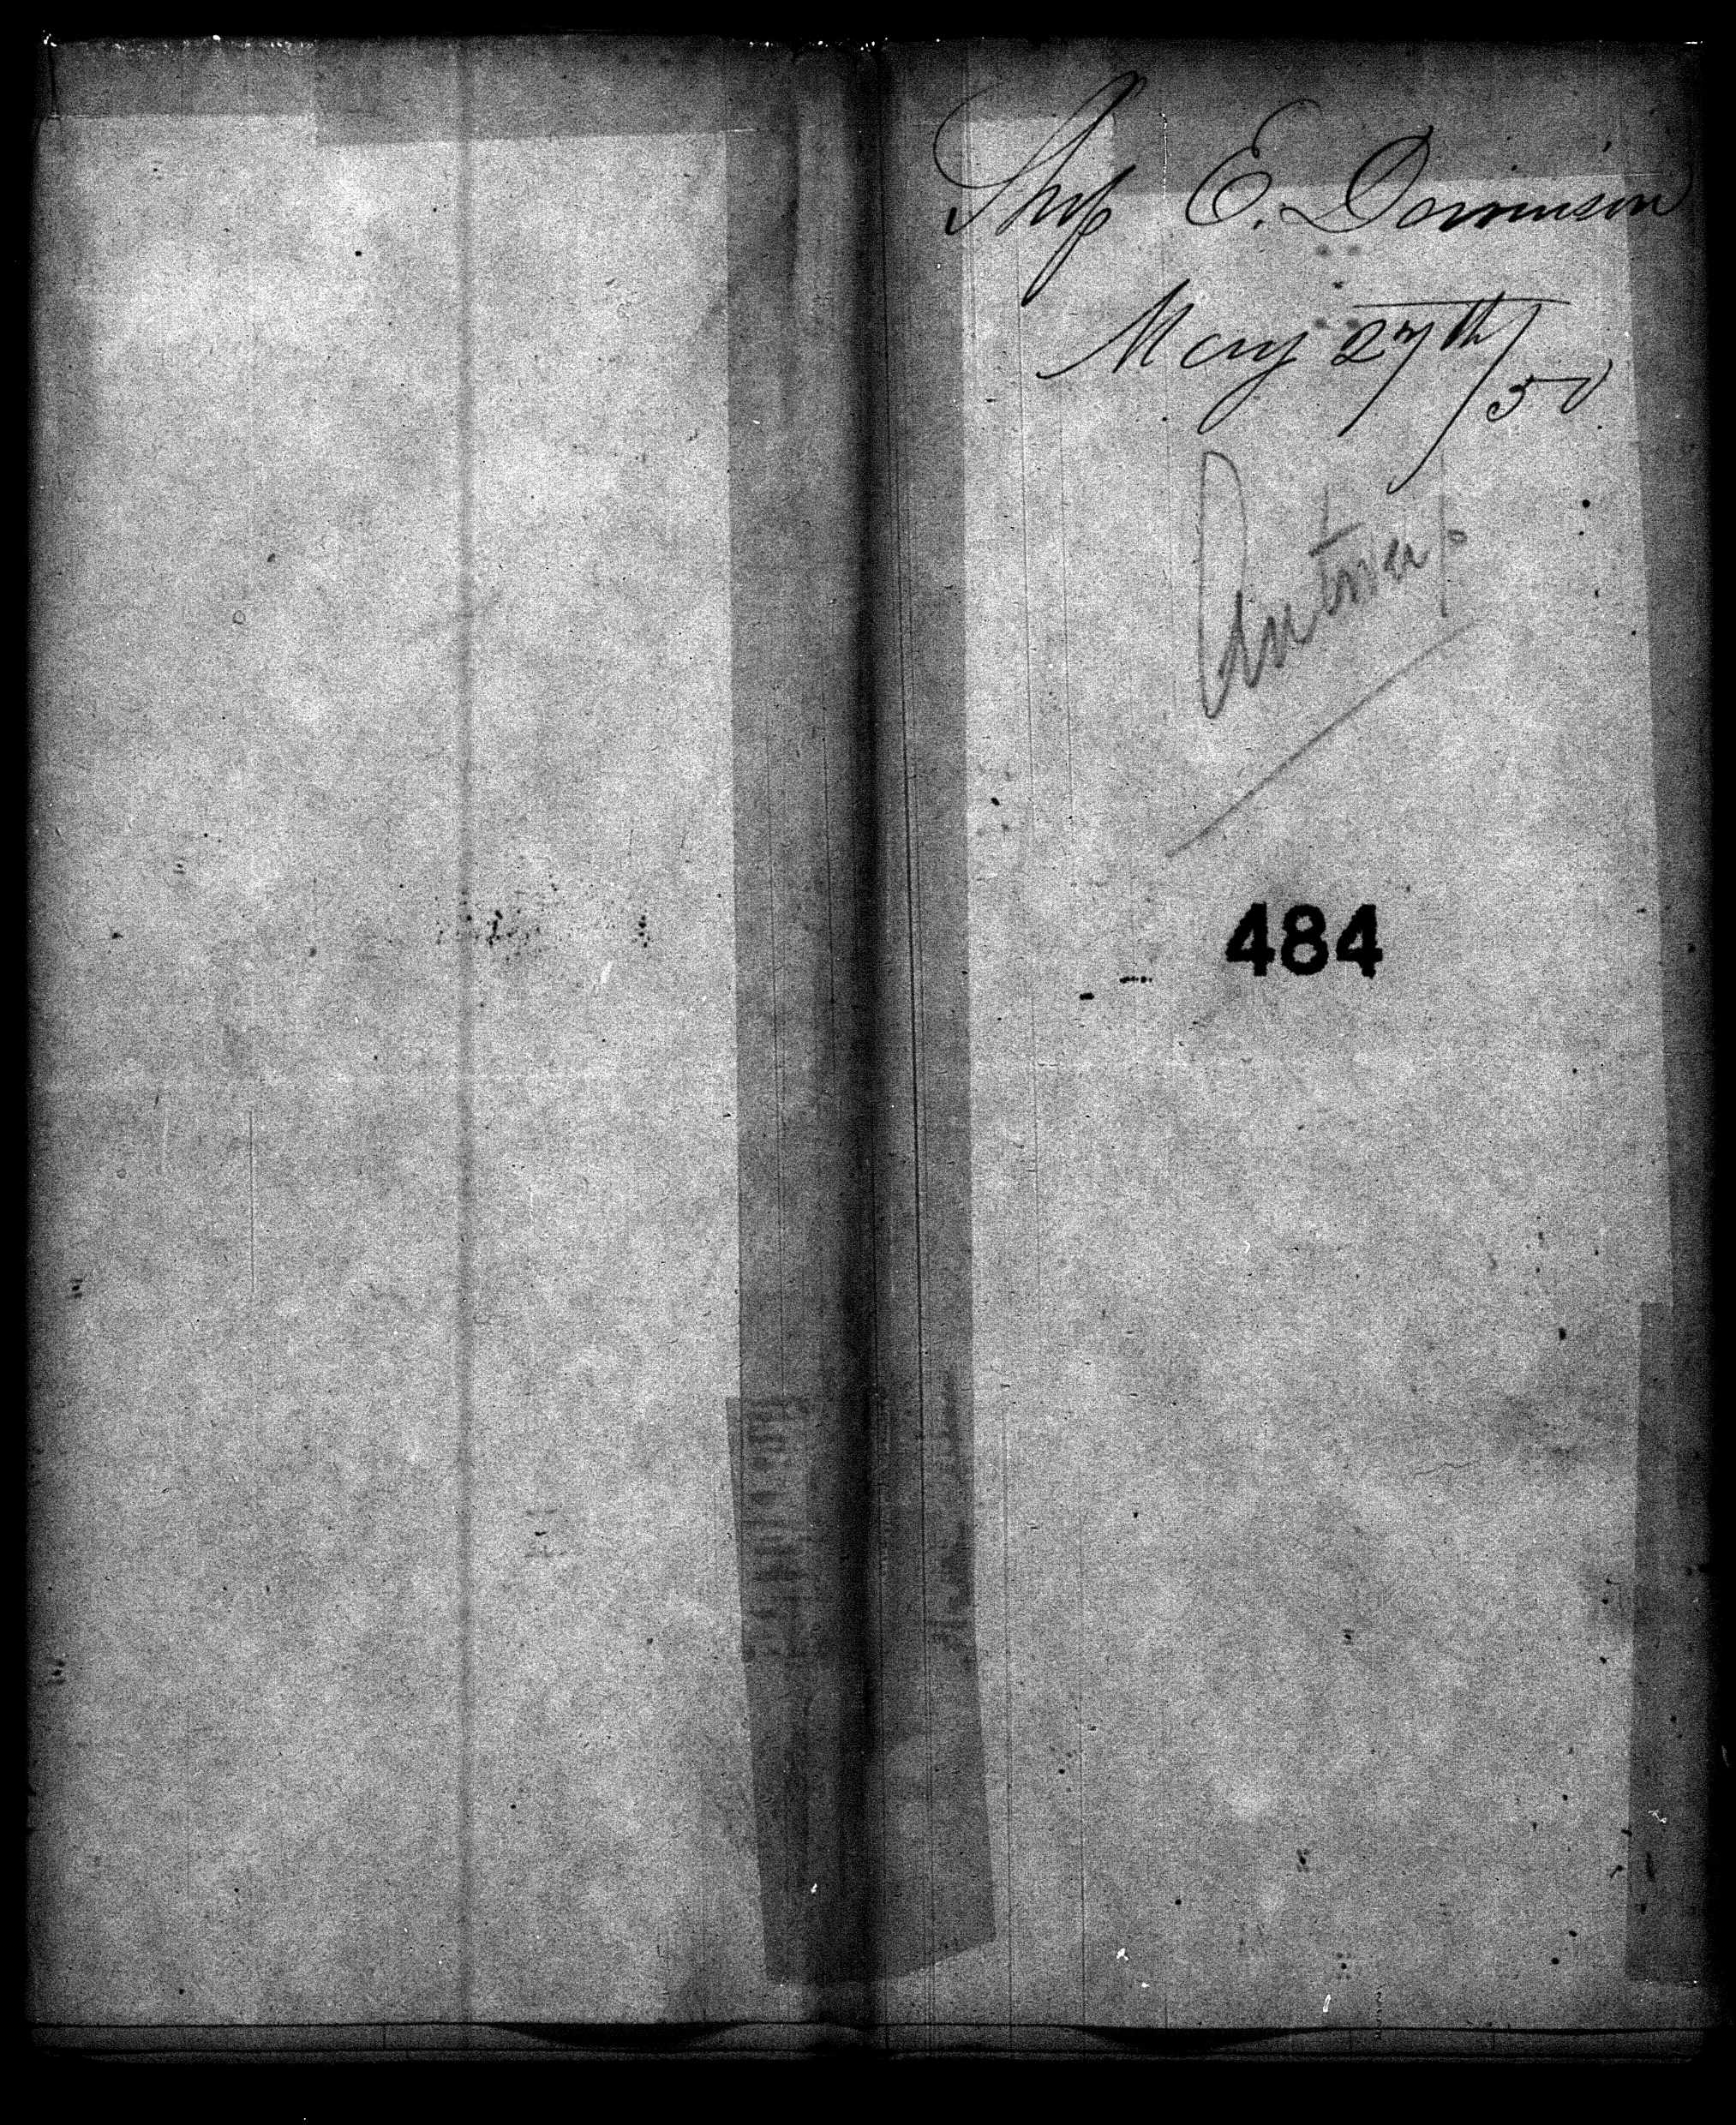 Ship E. Dennison
May 27th
/50
Antwerp
484